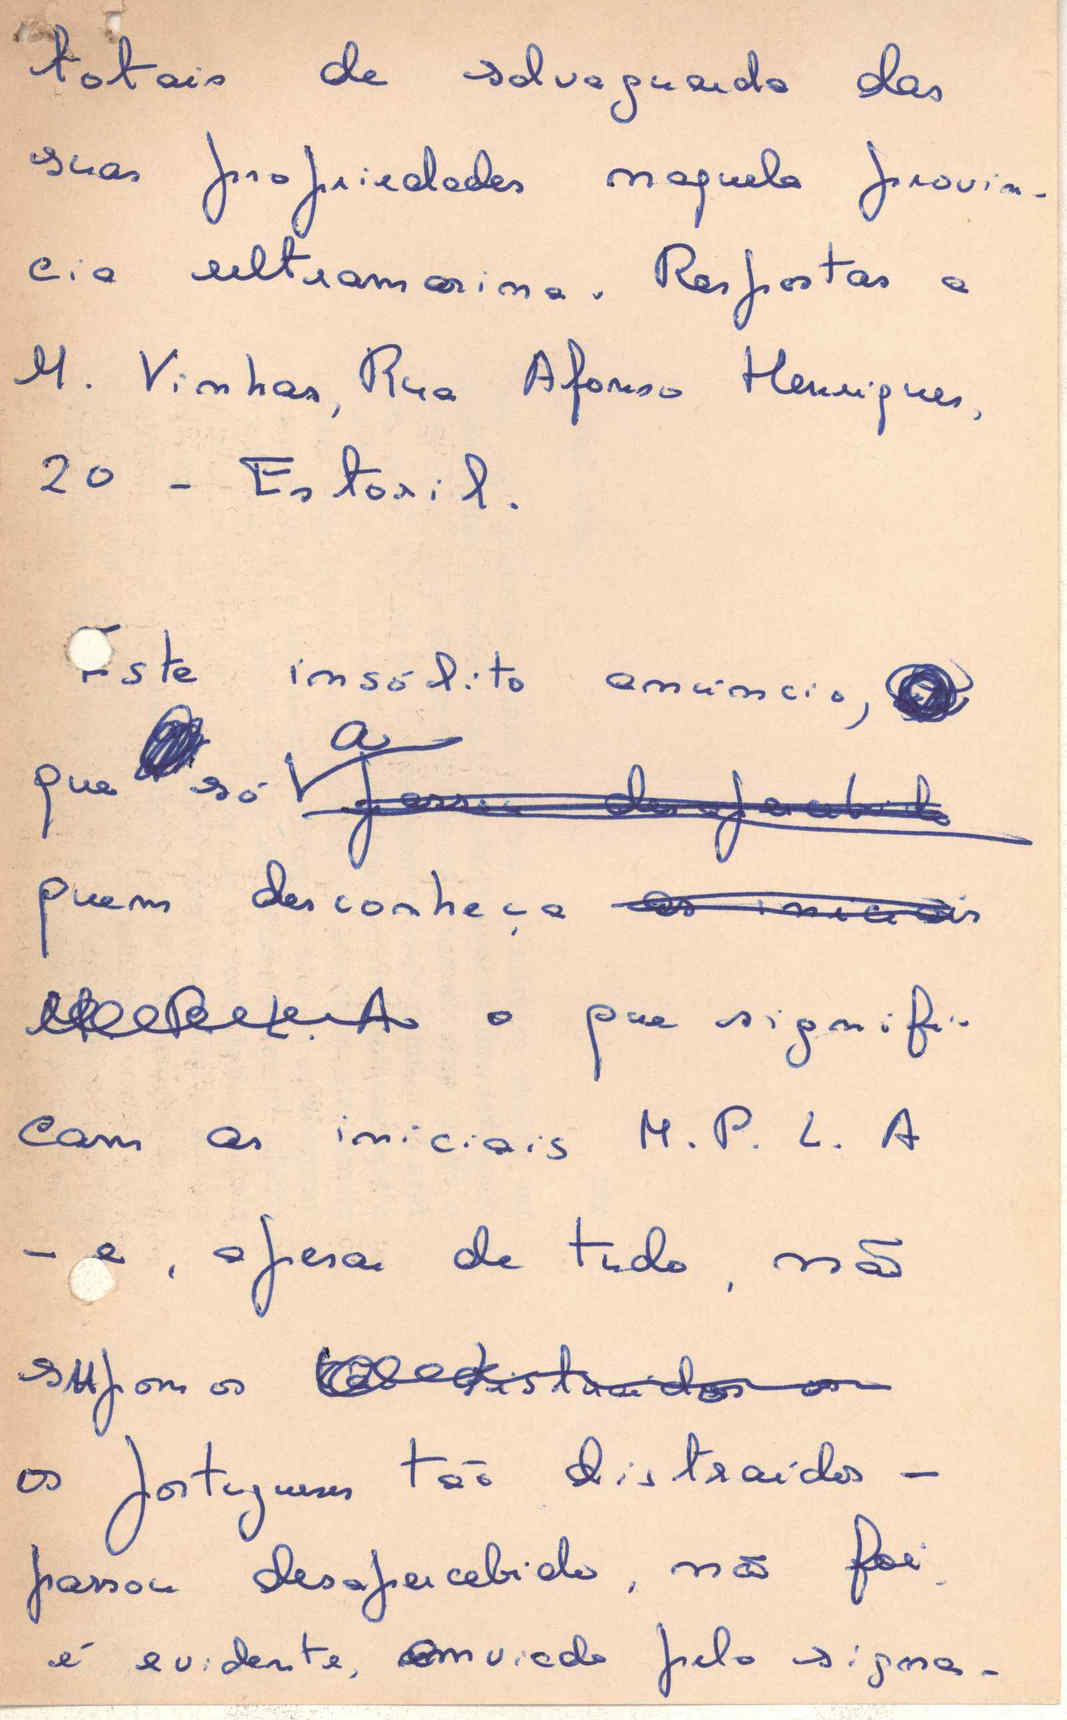 totais de salvaguarda das
suas propriedades naquela provin-
cia ultramarina. Respostas a
M. Vinhas, Rua Afonso Henriques,
20 - Estoril.
Este insólito anúncio,
que só a passou desapercebido
quem desconheça as iniciais
M.P.L.A. o que signifi-
cam as iniciais M.P.L.A
- e, apesar de tudo, não
supomos distraidos os
os portugueses tão distraidos -
passou desapercebido, não foi,
é evidente, enviado pelo signa-